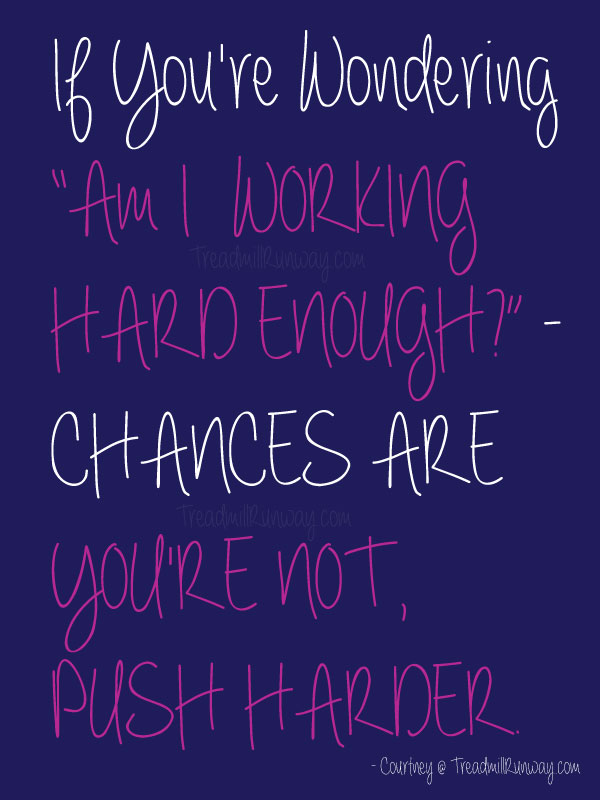 If You're Wondering
"Am I WORKING
TreadmillRunway.com
HARD ENOUGH?" -
CHANCES ARE
TreadmillRunway.com
YOU'RE NOT,
PUSH HARDER.
- Courtney @ TreadmillRunway.com